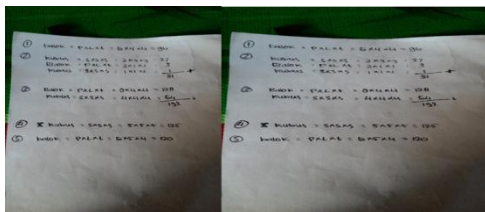 ① Balok = PxLxt = 6x4x4 =
② Kubus = sxsxs = 3x3x3 =
Balok = PxLxt = 3x1x1 = 3
Kubus = sxsxs = 1x1x1 = 1 +
31
③ Balok = PxLxt = 8x4x4 = 128
Kubus = sxsxs = 4x4x4 = 64 +
192
④ Kubus = sxsxs = 5x5x5 = 125
⑤ balok = PxLxt = 6x5x4 = 120
① Balok = PxLxt = 6x4x4 =
② Kubus = sxsxs = 3x3x3 =
Balok = PxLxt = 3x1x1 = 3
Kubus = sxsxs = 1x1x1 = 1 +
31
③ Balok = PxLxt = 8x4x4 = 128
Kubus = sxsxs = 4x4x4 = 64 +
192
④ Kubus = sxsxs = 5x5x5 = 125
⑤ balok = PxLxt = 6x5x4 = 120